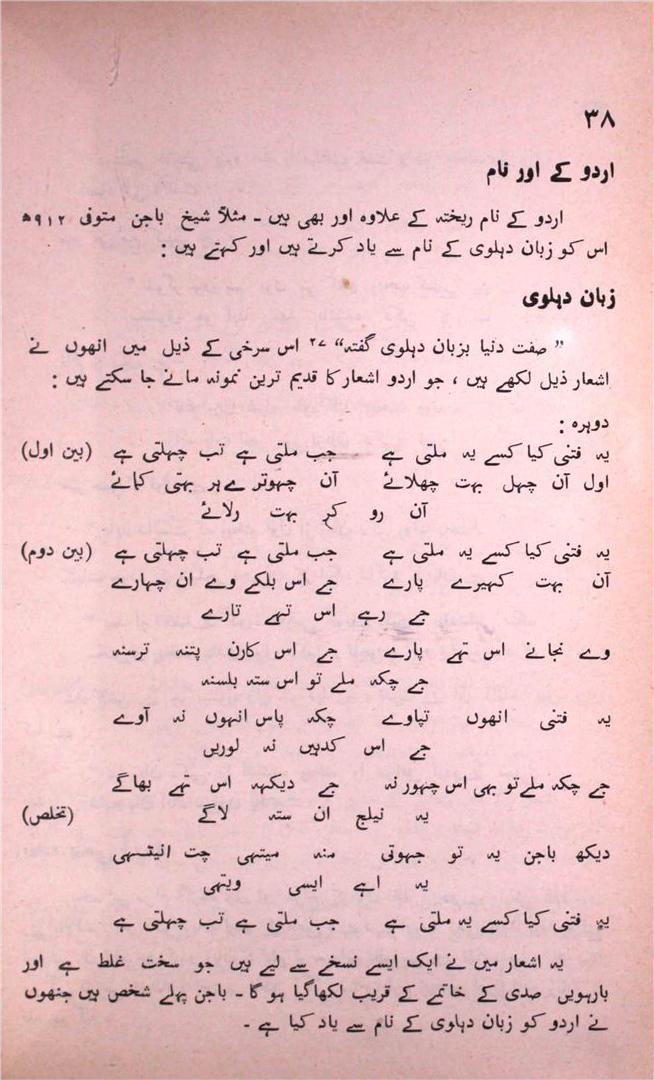 ۳۸
اردو کے اور نام
اردو کے نام ریختہ کے علاوہ اور بھی ہیں ۔ مثلاً شیخ باجن متوفی ۹۱۲ھ
اس کو زبان دہلوی کے نام سے یاد کرتے ہیں اور کہتے ہیں :
زبان دہلوی
” صفت دنیا بزبان دہلوی گفتہ“ ۲۷ اس سرخی کے ذیل میں انھوں نے
اشعار ذیل لکھے ہیں ، جو اردو اشعار کا قدیم ترین نمونہ مانے جا سکتے ہیں :
دوہرہ :
یہ فتنی کیا کسے یہ ملتی ہے جب ملتی ہے تب چہلتی ہے (بین اول)
اول آن چہل بہت چھلائے آن چہوترے ہر بہتی کہائے
آن رو کر بہت رلائے
یہ فتنی کیا کسے یہ ملتی ہے جب ملتی ہے تب چہلتی ہے (بین دوم)
آن بہت کہیرے پارے جے اس بلکے وے ان چہارے
جے رہے اس تھے تارے
وے نجانے اس تھے پارے جے اس کارن پتنہ ترسنہ
جے چکہ ملے تو اس ستہ بلسنہ
یہ فتنی انھوں تپاوے چکہ پاس انہوں نہ آوے
جے اس کدہیں نہ لوریں
جے چکہ ملے تو بھی اس چہور نہ جے دیکہہ اس تھے بھاگے
یہ نیلج ان ستہ لاگے (تخلص)
دیکھ باجن یہ تو جہوتی منہ میتھی چت انیٹھی
یہ اہے ایسی ویتھی
یہ فتنی کیا کسے یہ ملتی ہے جب ملتی ہے تب چہلتی ہے
یہ اشعار میں نے ایک ایسے نسخے سے لیے ہیں جو سخت غلط ہے اور
بارہویں صدی کے خاتمے کے قریب لکھا گیا ہو گا ۔ باجن پہلے شخص ہیں جنھوں
نے اردو کو زبان دہلوی کے نام سے یاد کیا ہے ۔